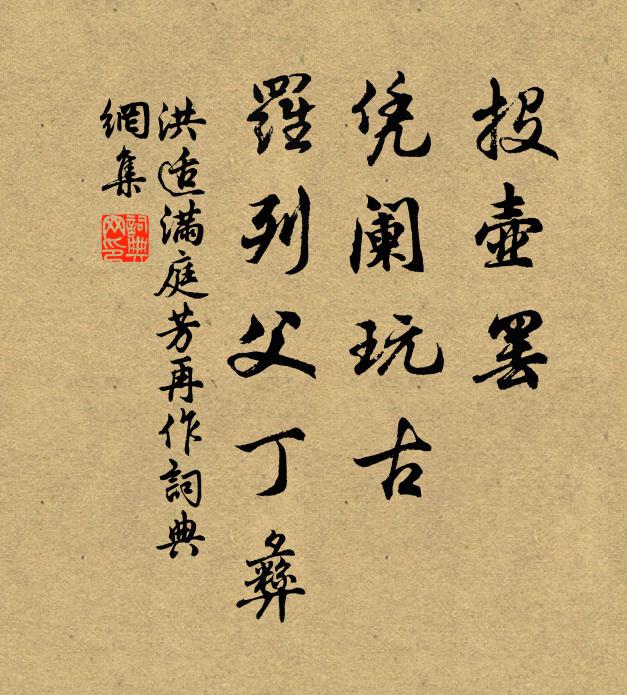 投壶罢
凭阑玩古
羅列父丁彝
洪适满庭芳再作詞典
網集
詞典网印